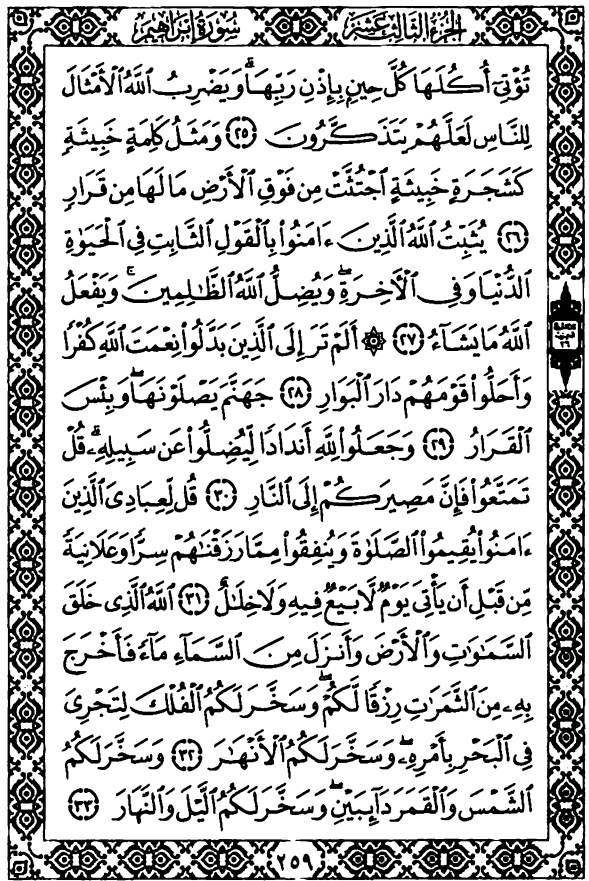 الجزء الثالث عشر سورة إبراهيم
تُؤْتِىٓ أُكُلَهَا كُلَّ حِينٍۭ بِإِذْنِ رَبِّهَاۗ وَيَضْرِبُ ٱللَّهُ ٱلْأَمْثَالَ
لِلنَّاسِ لَعَلَّهُمْ يَتَذَكَّرُونَ ٢٥ وَمَثَلُ كَلِمَةٍ خَبِيثَةٍ
كَشَجَرَةٍ خَبِيثَةٍ ٱجْتُثَّتْ مِن فَوْقِ ٱلْأَرْضِ مَا لَهَا مِن قَرَارٍ
٢٦ يُثَبِّتُ ٱللَّهُ ٱلَّذِينَ ءَامَنُوا۟ بِٱلْقَوْلِ ٱلثَّابِتِ فِى ٱلْحَيَوٰةِ
ٱلدُّنْيَا وَفِى ٱلْءَاخِرَةِۖ وَيُضِلُّ ٱللَّهُ ٱلظَّٰلِمِينَۚ وَيَفْعَلُ
ٱللَّهُ مَا يَشَآءُ ٢٧ ۞ أَلَمْ تَرَ إِلَى ٱلَّذِينَ بَدَّلُوا۟ نِعْمَتَ ٱللَّهِ كُفْرًا
وَأَحَلُّوا۟ قَوْمَهُمْ دَارَ ٱلْبَوَارِ ٢٨ جَهَنَّمَ يَصْلَوْنَهَاۖ وَبِئْسَ
ٱلْقَرَارُ ٢٩ وَجَعَلُوا۟ لِلَّهِ أَندَادًا لِّيُضِلُّوا۟ عَن سَبِيلِهِۦۗ قُلْ
تَمَتَّعُوا۟ فَإِنَّ مَصِيرَكُمْ إِلَى ٱلنَّارِ ٣٠ قُل لِّعِبَادِىَ ٱلَّذِينَ
ءَامَنُوا۟ يُقِيمُوا۟ ٱلصَّلَوٰةَ وَيُنفِقُوا۟ مِمَّا رَزَقْنَٰهُمْ سِرًّا وَعَلَانِيَةً
مِّن قَبْلِ أَن يَأْتِىَ يَوْمٌ لَّا بَيْعٌ فِيهِ وَلَا خِلَٰلٌ ٣١ ٱللَّهُ ٱلَّذِى خَلَقَ
ٱلسَّمَٰوَٰتِ وَٱلْأَرْضَ وَأَنزَلَ مِنَ ٱلسَّمَآءِ مَآءً فَأَخْرَجَ
بِهِۦ مِنَ ٱلثَّمَرَٰتِ رِزْقًا لَّكُمْۖ وَسَخَّرَ لَكُمُ ٱلْفُلْكَ لِتَجْرِىَ
فِى ٱلْبَحْرِ بِأَمْرِهِۦۖ وَسَخَّرَ لَكُمُ ٱلْأَنْهَٰرَ ٣٢ وَسَخَّرَ لَكُمُ
ٱلشَّمْسَ وَٱلْقَمَرَ دَآئِبَيْنِۖ وَسَخَّرَ لَكُمُ ٱلَّيْلَ وَٱلنَّهَارَ ٣٣
٢٥٩